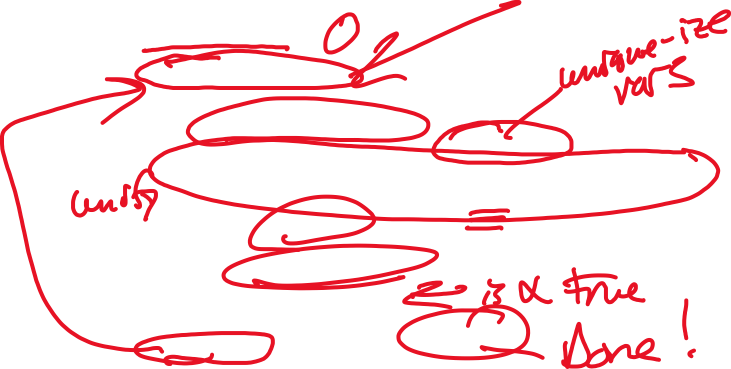 unique-ize
vars
unify
is α true
Done!